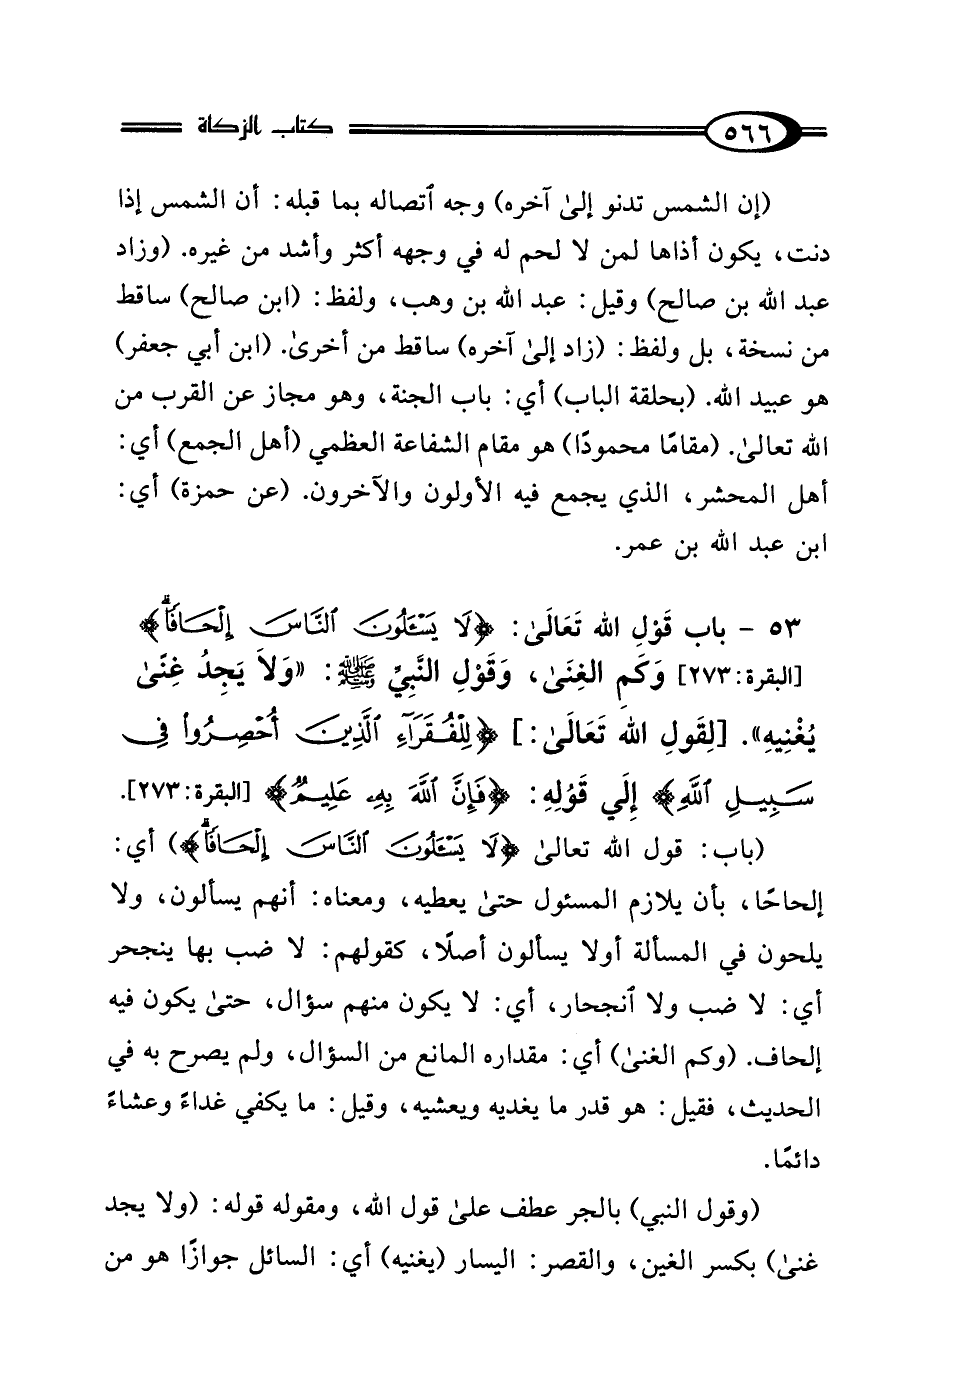 ٥٦٦ كتاب الزكاة
(إن الشمس تدنو إلىٰ آخره) وجه ٱتصاله بما قبله: أن الشمس إذا
دنت، يكون أذاها لمن لا لحم له في وجهه أكثر وأشد من غيره. (وزاد
عبد الله بن صالح) وقيل: عبد الله بن وهب، ولفظ: (ابن صالح) ساقط
من نسخة، بل ولفظ: (زاد إلىٰ آخره) ساقط من أخرىٰ. (ابن أبي جعفر)
هو عبيد الله. (بحلقة الباب) أي: باب الجنة، وهو مجاز عن القرب من
الله تعالىٰ. (مقامًا محمودًا) هو مقام الشفاعة العظمي (أهل الجمع) أي:
أهل المحشر، الذي يجمع فيه الأولون والآخرون. (عن حمزة) أي:
ابن عبد الله بن عمر.
٥٣ - باب قَوْلِ الله تَعَالَىٰ: ﴿لَا يَسْـَٔلُونَ ٱلنَّاسَ إِلْحَافًاۗ﴾
[البقرة: ٢٧٣] وَكَمِ الغِنَىٰ، وَقَوْلِ النَّبِيِّ ﷺ: «وَلاَ يَجِدُ غِنًىٰ
يُغْنِيهِ». [لِقَولِ الله تَعَالَىٰ:] ﴿لِلْفُقَرَآءِ ٱلَّذِينَ أُحْصِرُواْ فِى
سَبِيلِ ٱللَّهِ﴾ إِلَي قَوْلِهِ: ﴿فَإِنَّ ٱللَّهَ بِهِۦ عَلِيمٌ﴾ [البقرة: ٢٧٣].
(باب: قول الله تعالىٰ ﴿لَا يَسْـَٔلُونَ ٱلنَّاسَ إِلْحَافًاۗ﴾) أي:
إلحاحًا، بأن يلازم المسئول حتىٰ يعطيه، ومعناه: أنهم يسألون، ولا
يلحون في المسألة أولا يسألون أصلًا، كقولهم: لا ضب بها ينجحر
أي: لا ضب ولا ٱنجحار، أي: لا يكون منهم سؤال، حتىٰ يكون فيه
إلحاف. (وكم الغنىٰ) أي: مقداره المانع من السؤال، ولم يصرح به في
الحديث، فقيل: هو قدر ما يغديه ويعشيه، وقيل: ما يكفي غداءً وعشاءً
دائمًا.
(وقول النبي) بالجر عطف علىٰ قول الله، ومقوله قوله: (ولا يجد
غنىٰ) بكسر الغين، والقصر: اليسار (يغنيه) أي: السائل جوازًا هو من